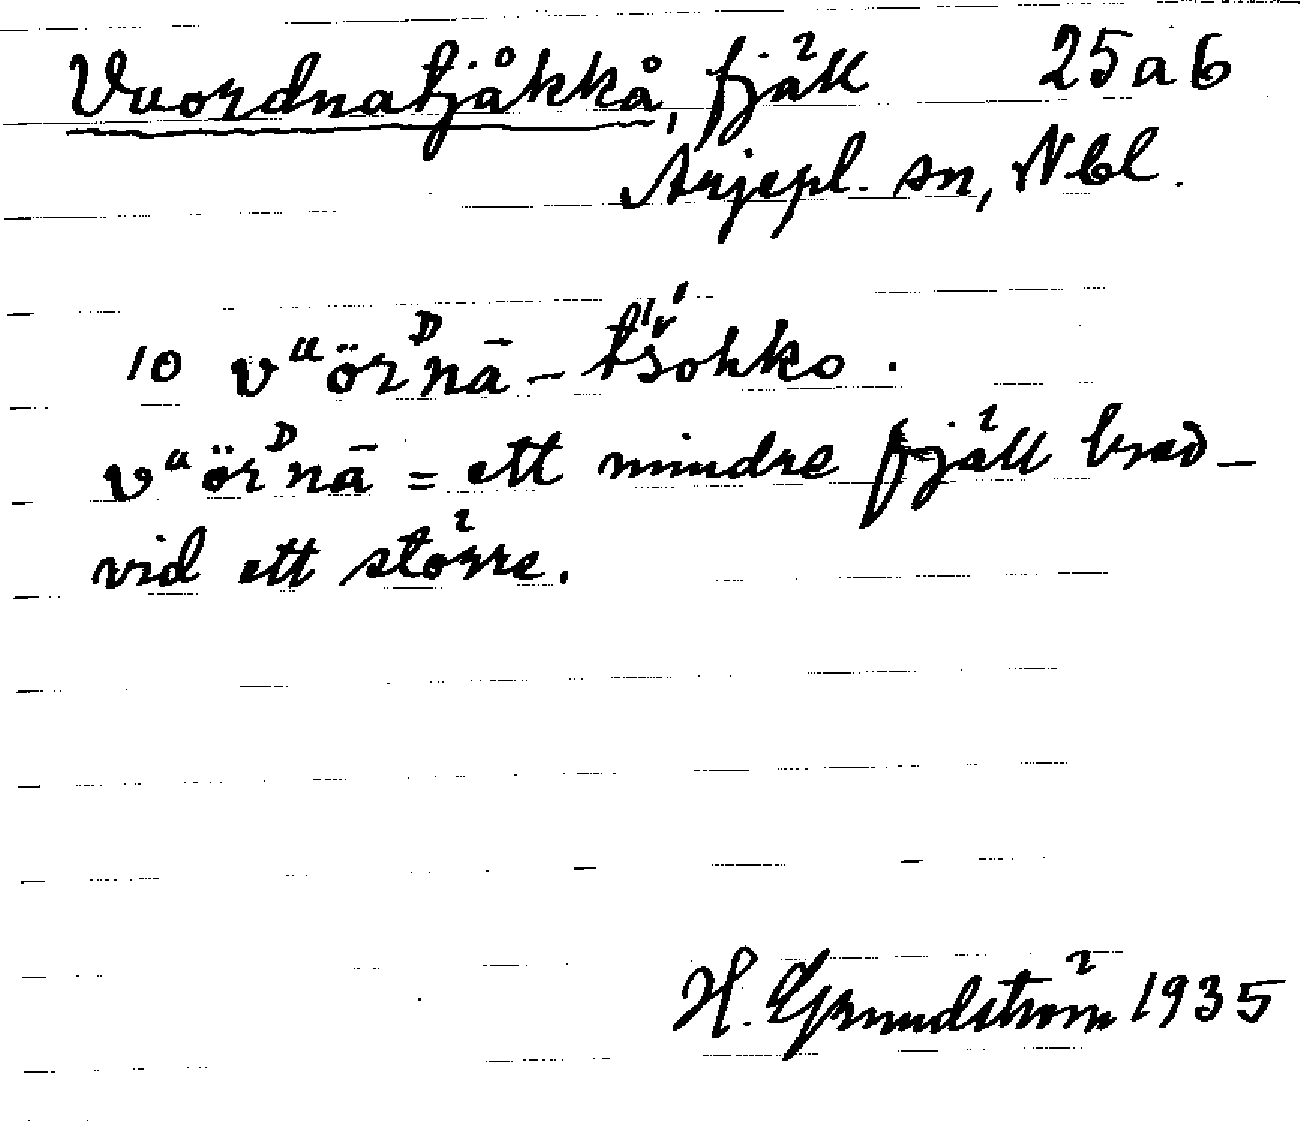 Vuordnatjåkkå, fjäll 25 a b
Arjepl. sn, Nbl.
10 vᵘörᴰnā - tš́ohko.
vᵘörᴰnā = ett mindre fjäll bred-
vid ett större.
H. Grundström 1935